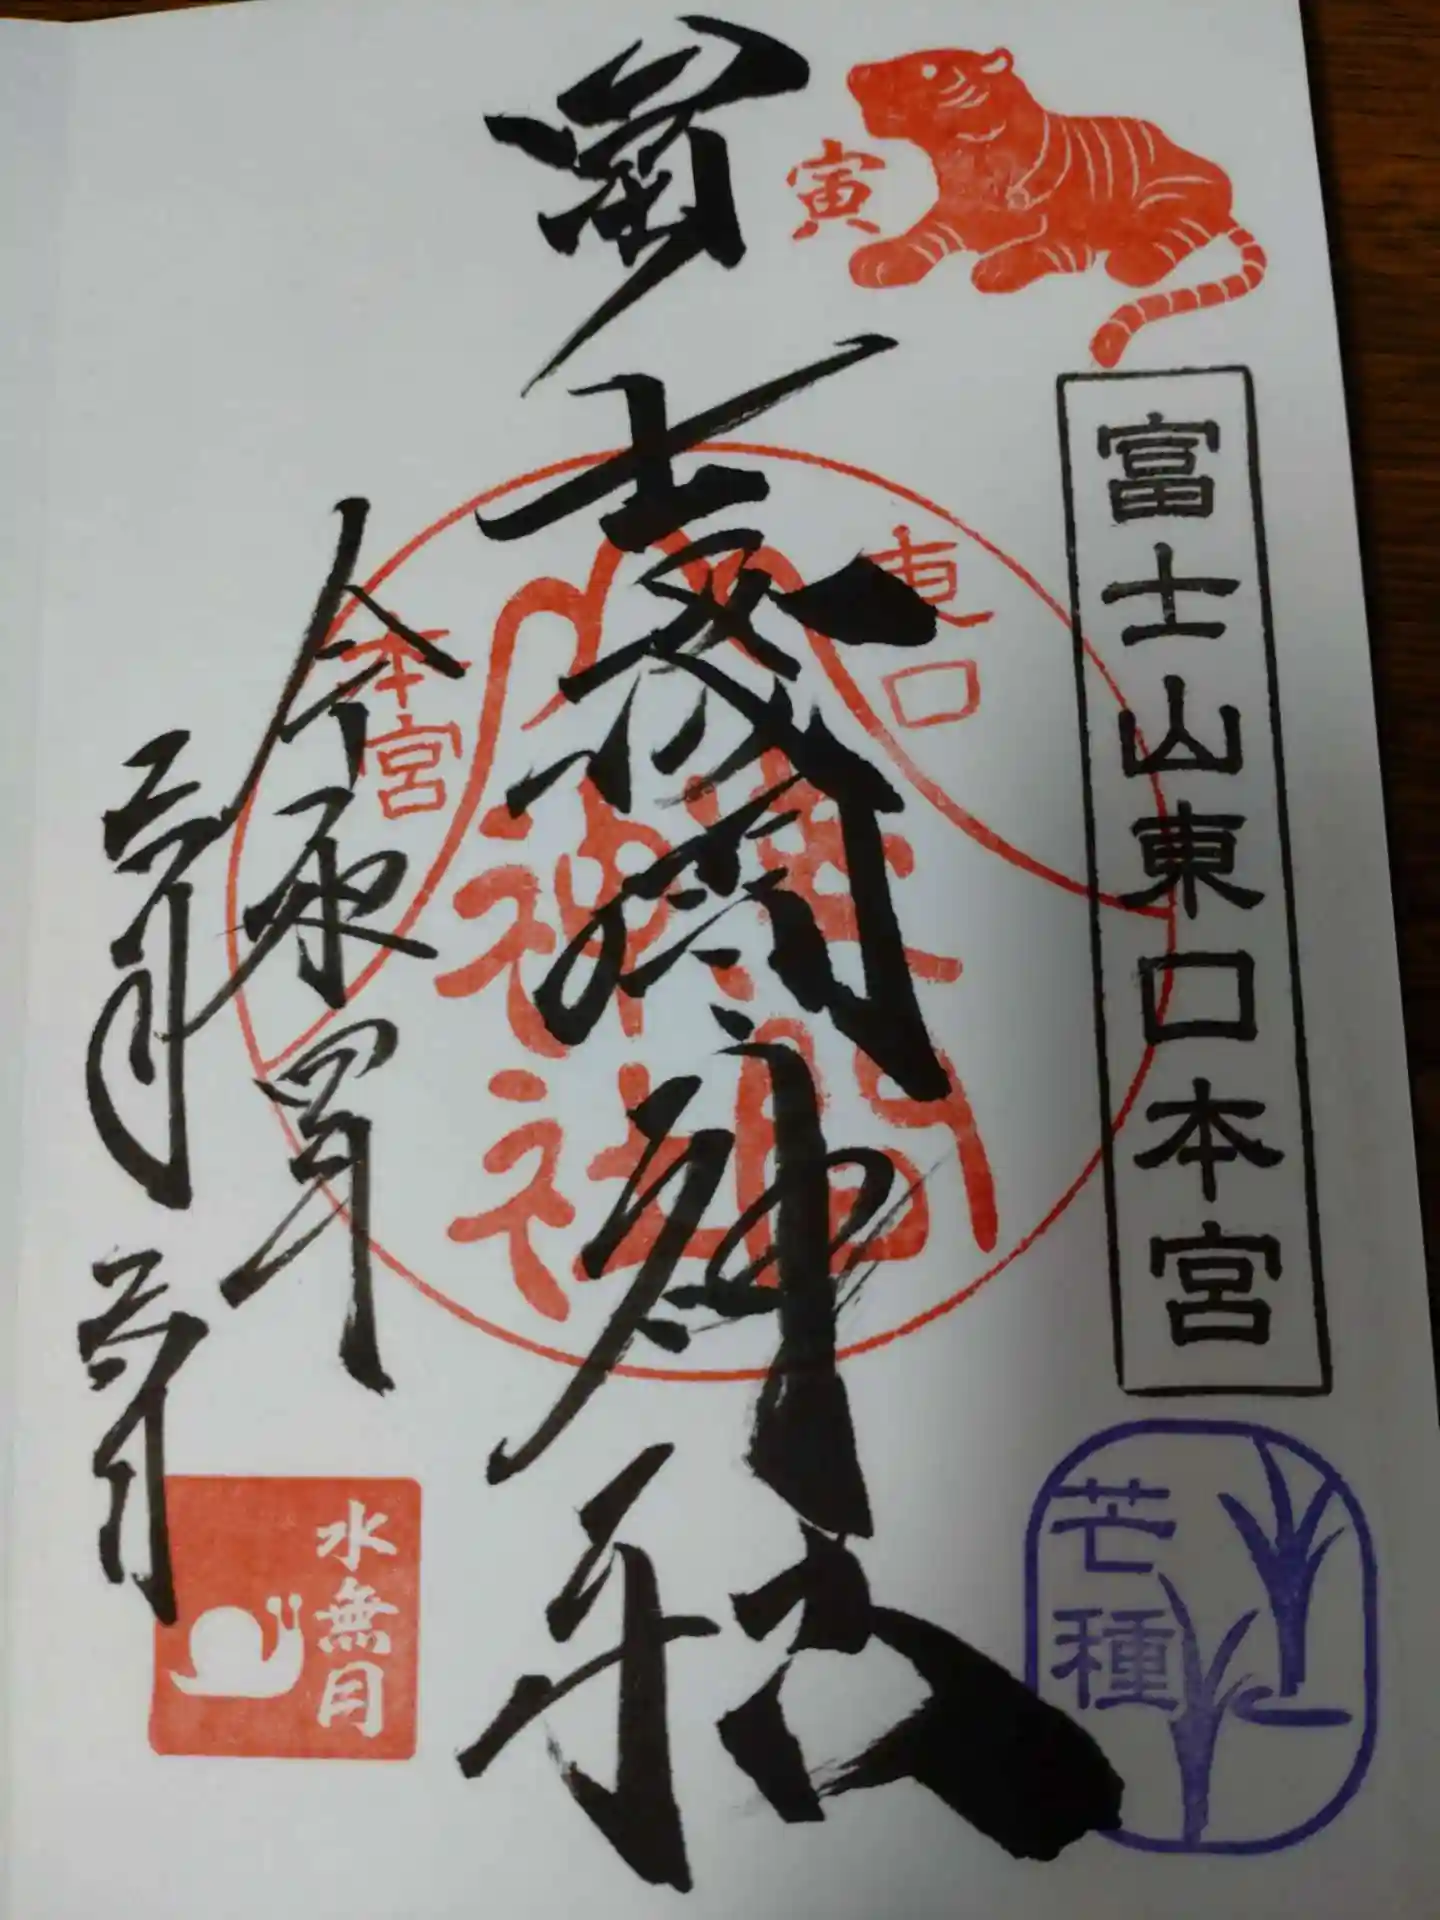 寅
富士山東口本宮
芒種
冨士浅間神社
東口
本宮
浅間
神社
令和四年
六月
六日
水無月